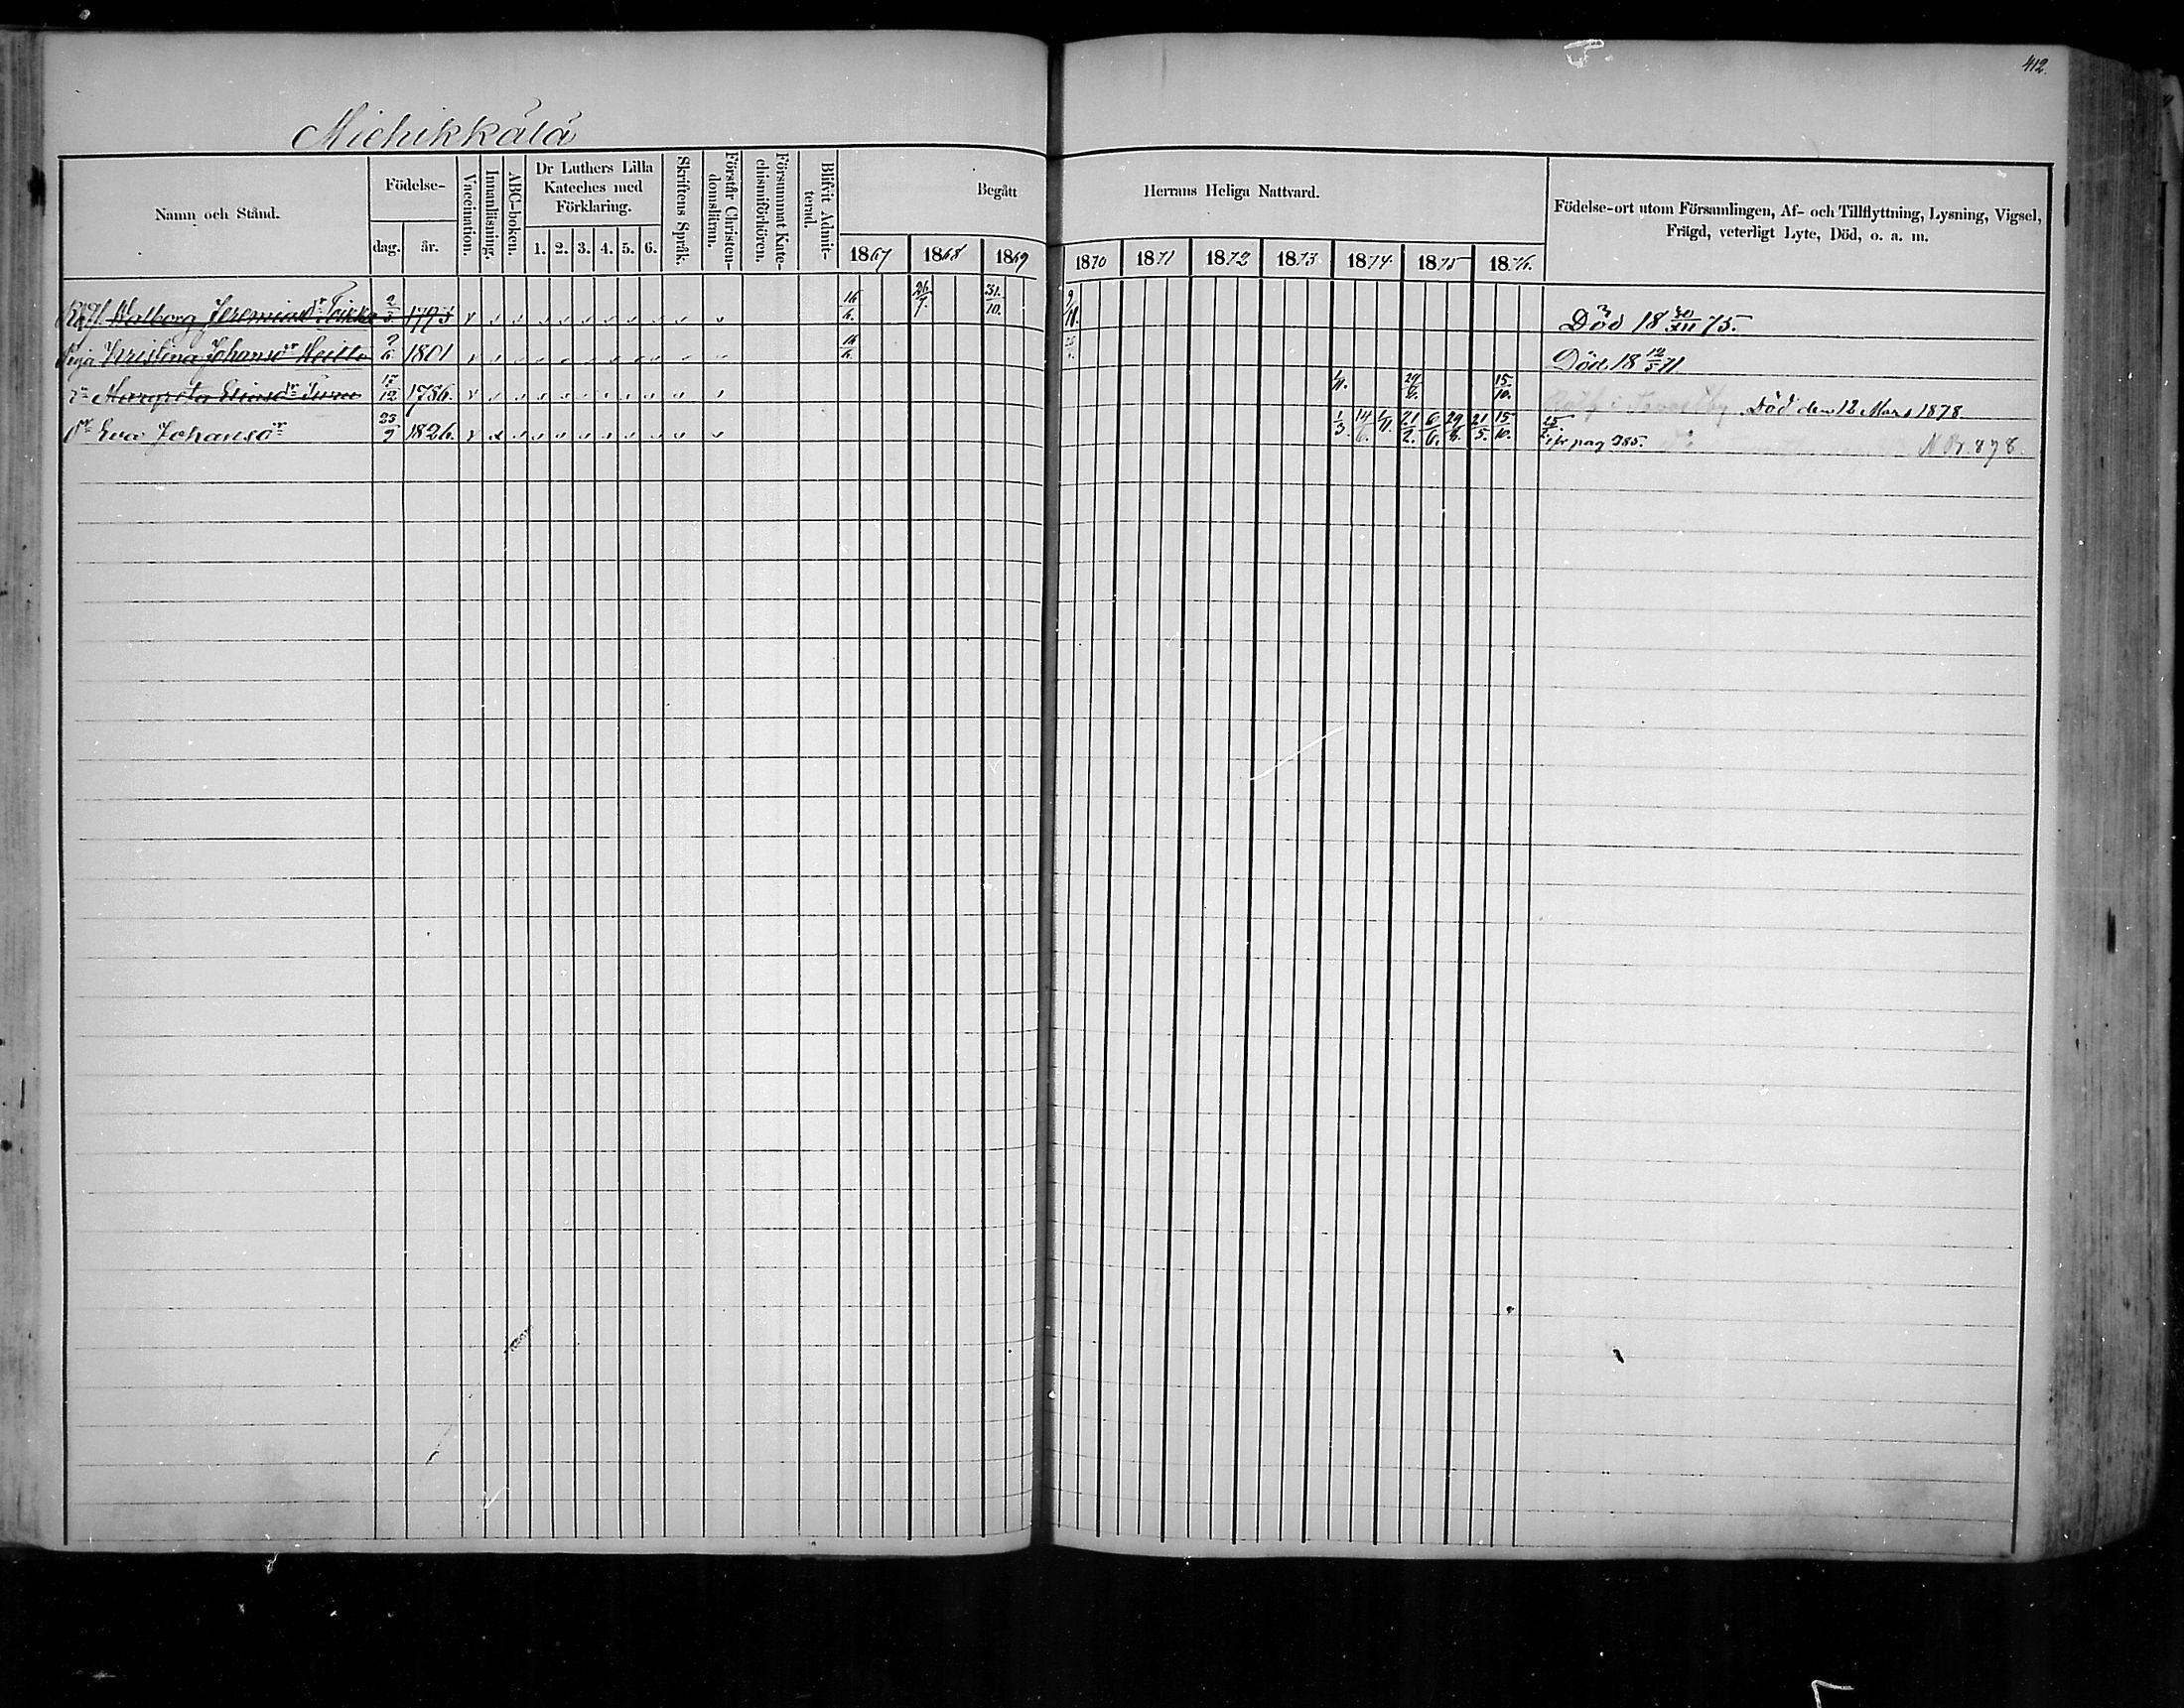 412.
Michikkälä
Namn och Stånd.
Födelse-
dag.
år.
Vaccination.
Innanläsning.
ABC-boken.
Dr Luthers Lilla
Kateches med
Förklaring.
1. 2. 3. 4. 5. 6.
Skriftens Språk.
Förstår Christen-
domsläran.
Försummat Kate-
chismiförhören.
Blifvit Admit-
terad.
Begått Herrans Heliga Nattvard.
1867 1868 1869 1870 1871 1872 1873 1874 1875 1876.
Födelse-ort utom Församlingen, Af- och Tillflyttning, Lysning, Vigsel,
Frägd, veterligt Lyte, Död, o. a. m.
Walborg Jeremiasdr 2/3 1793 v 16/6. 26/7. 31/10. 9/10. Död 18 30/XII 75.
Piga Kristina Johansdr Heitto 1801 v 16/6. Död 18 12/5 71
Margreta Eliasdr 17/12 1786. v 15/10. Död den 12 Mars 1878.
Eva Johansdr 23/9 1826. v 1/3. 14/6. 21/2. 6/6. 29/8. 21/5. 15/10. pag 385.